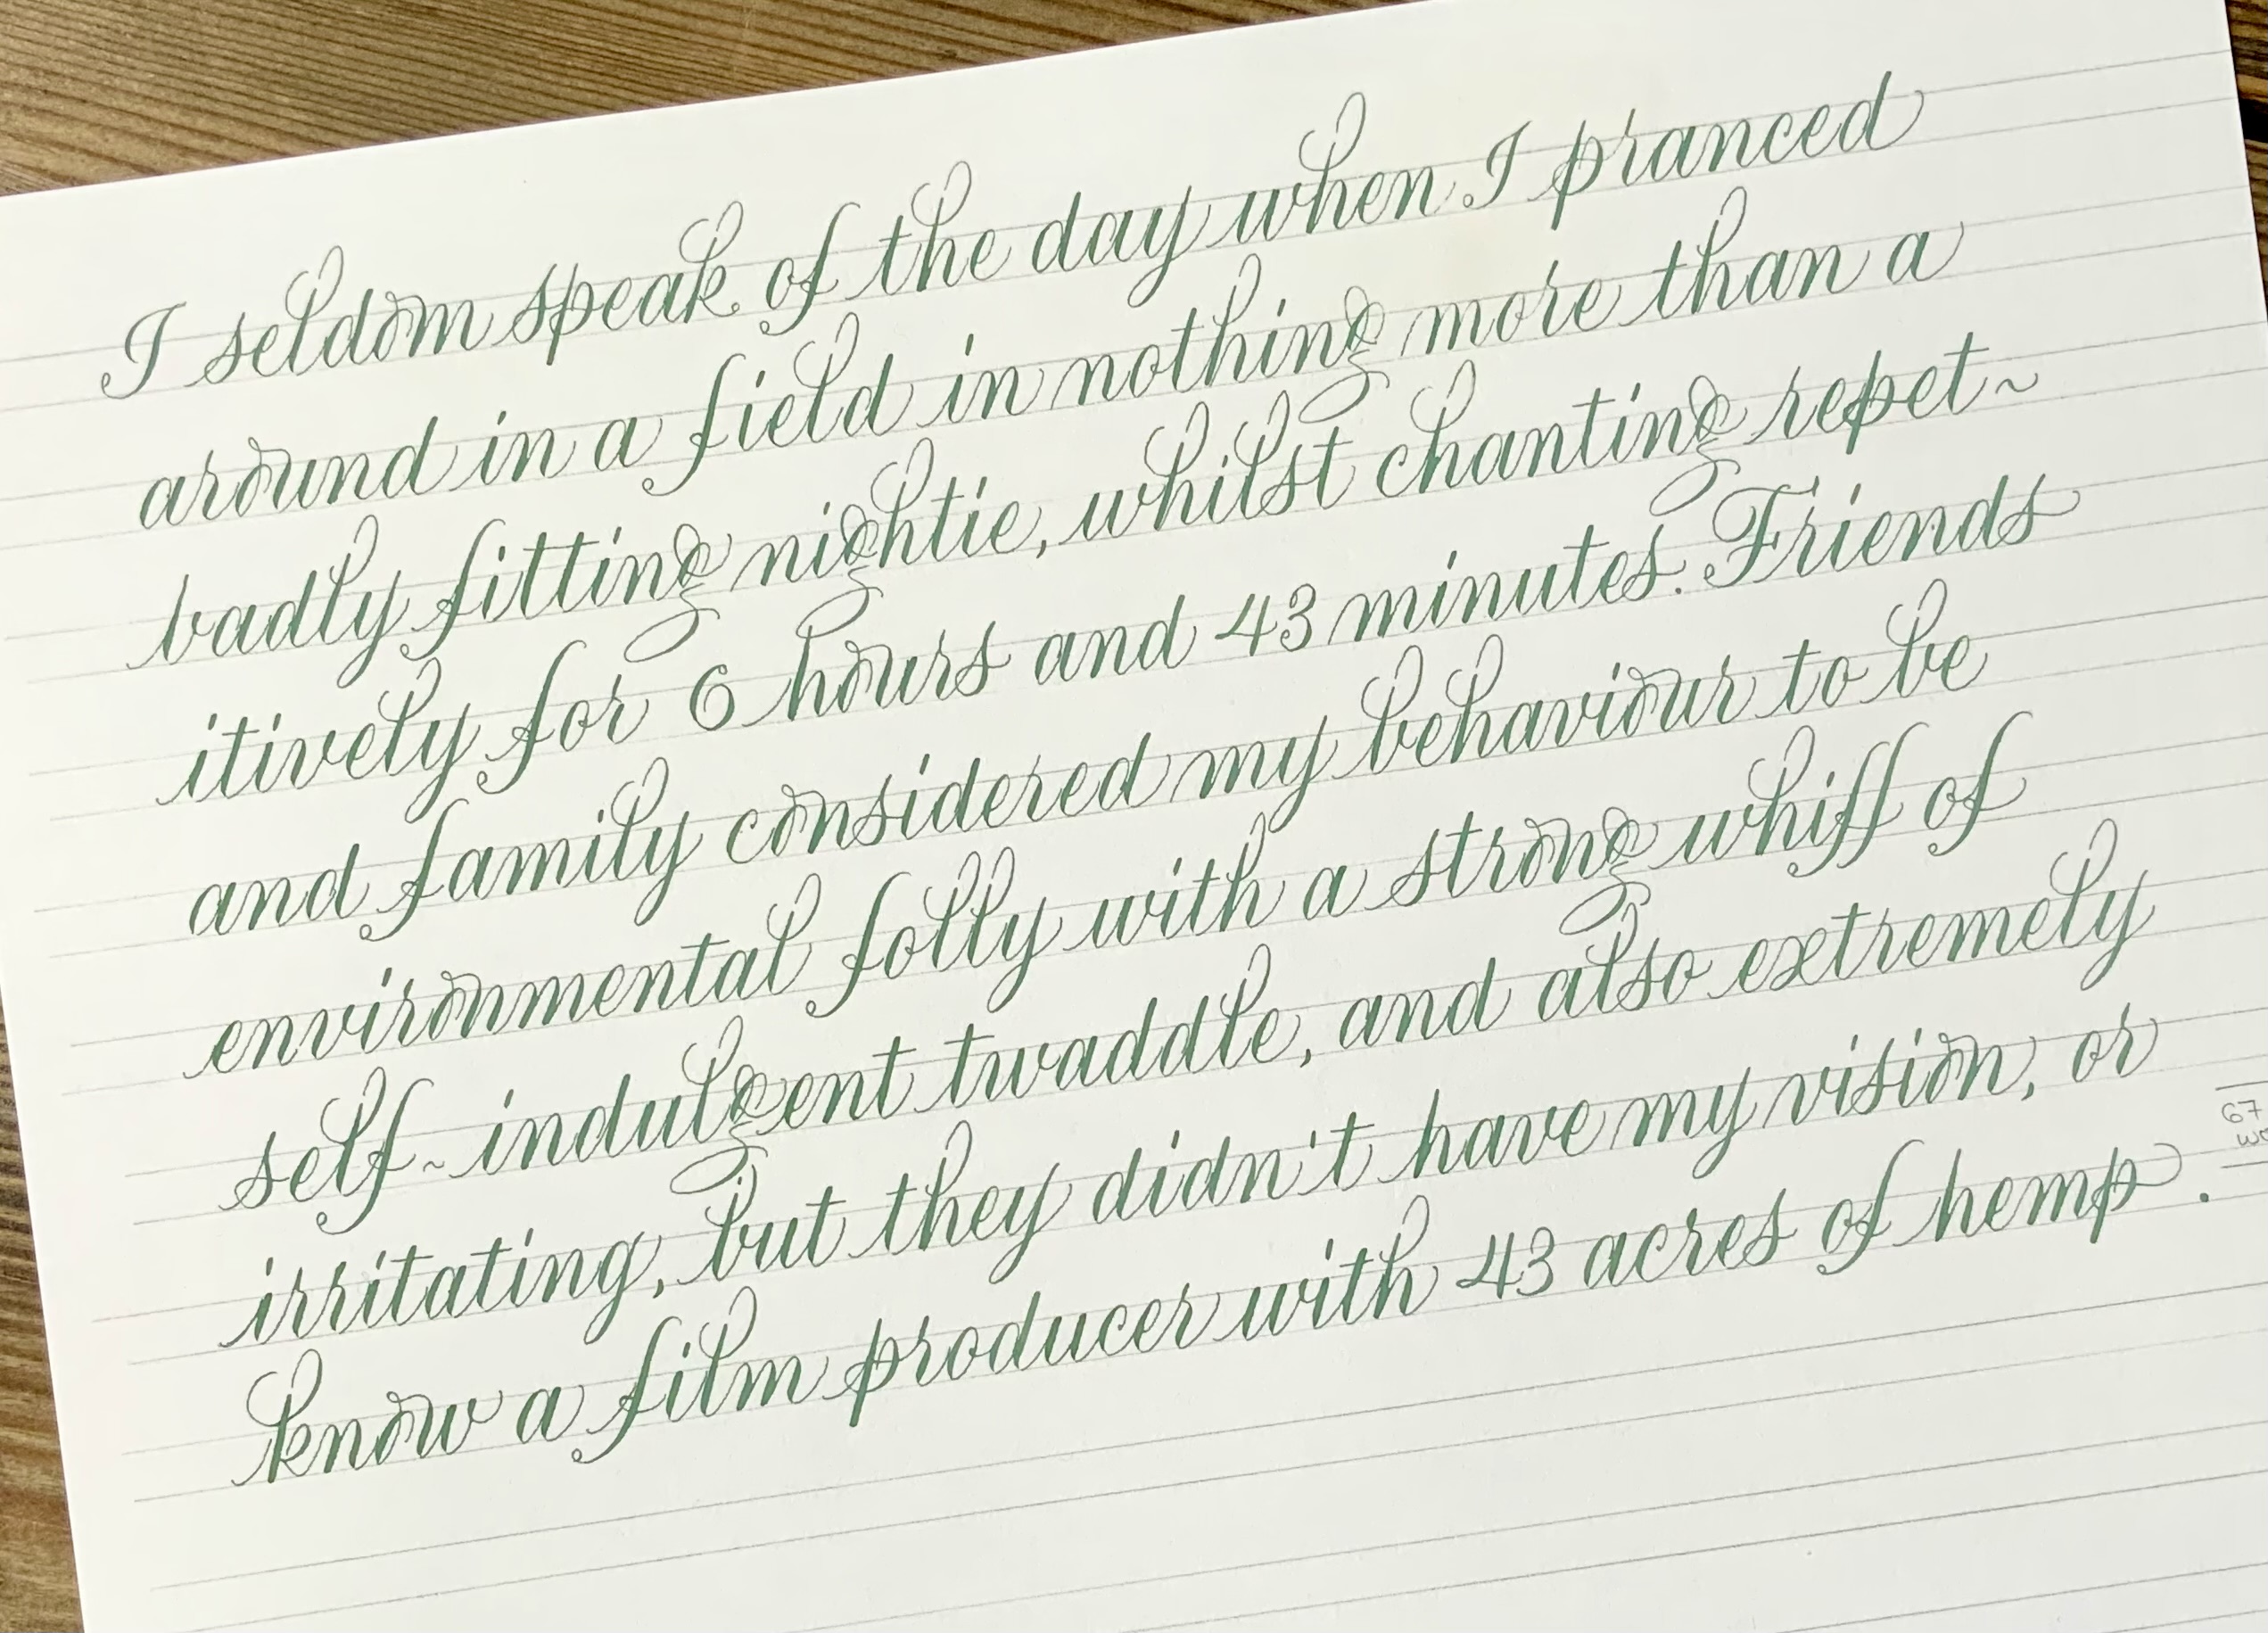 I seldom speak of the day when I pranced
around in a field in nothing more than a
badly fitting nightie, whilst chanting repet~
itively for 6 hours and 43 minutes. Friends
and family considered my behaviour to be
environmental folly with a strong whiff of
self~indulgent twaddle, and also extremely
irritating, but they didn't have my vision, or
know a film producer with 43 acres of hemp.
67